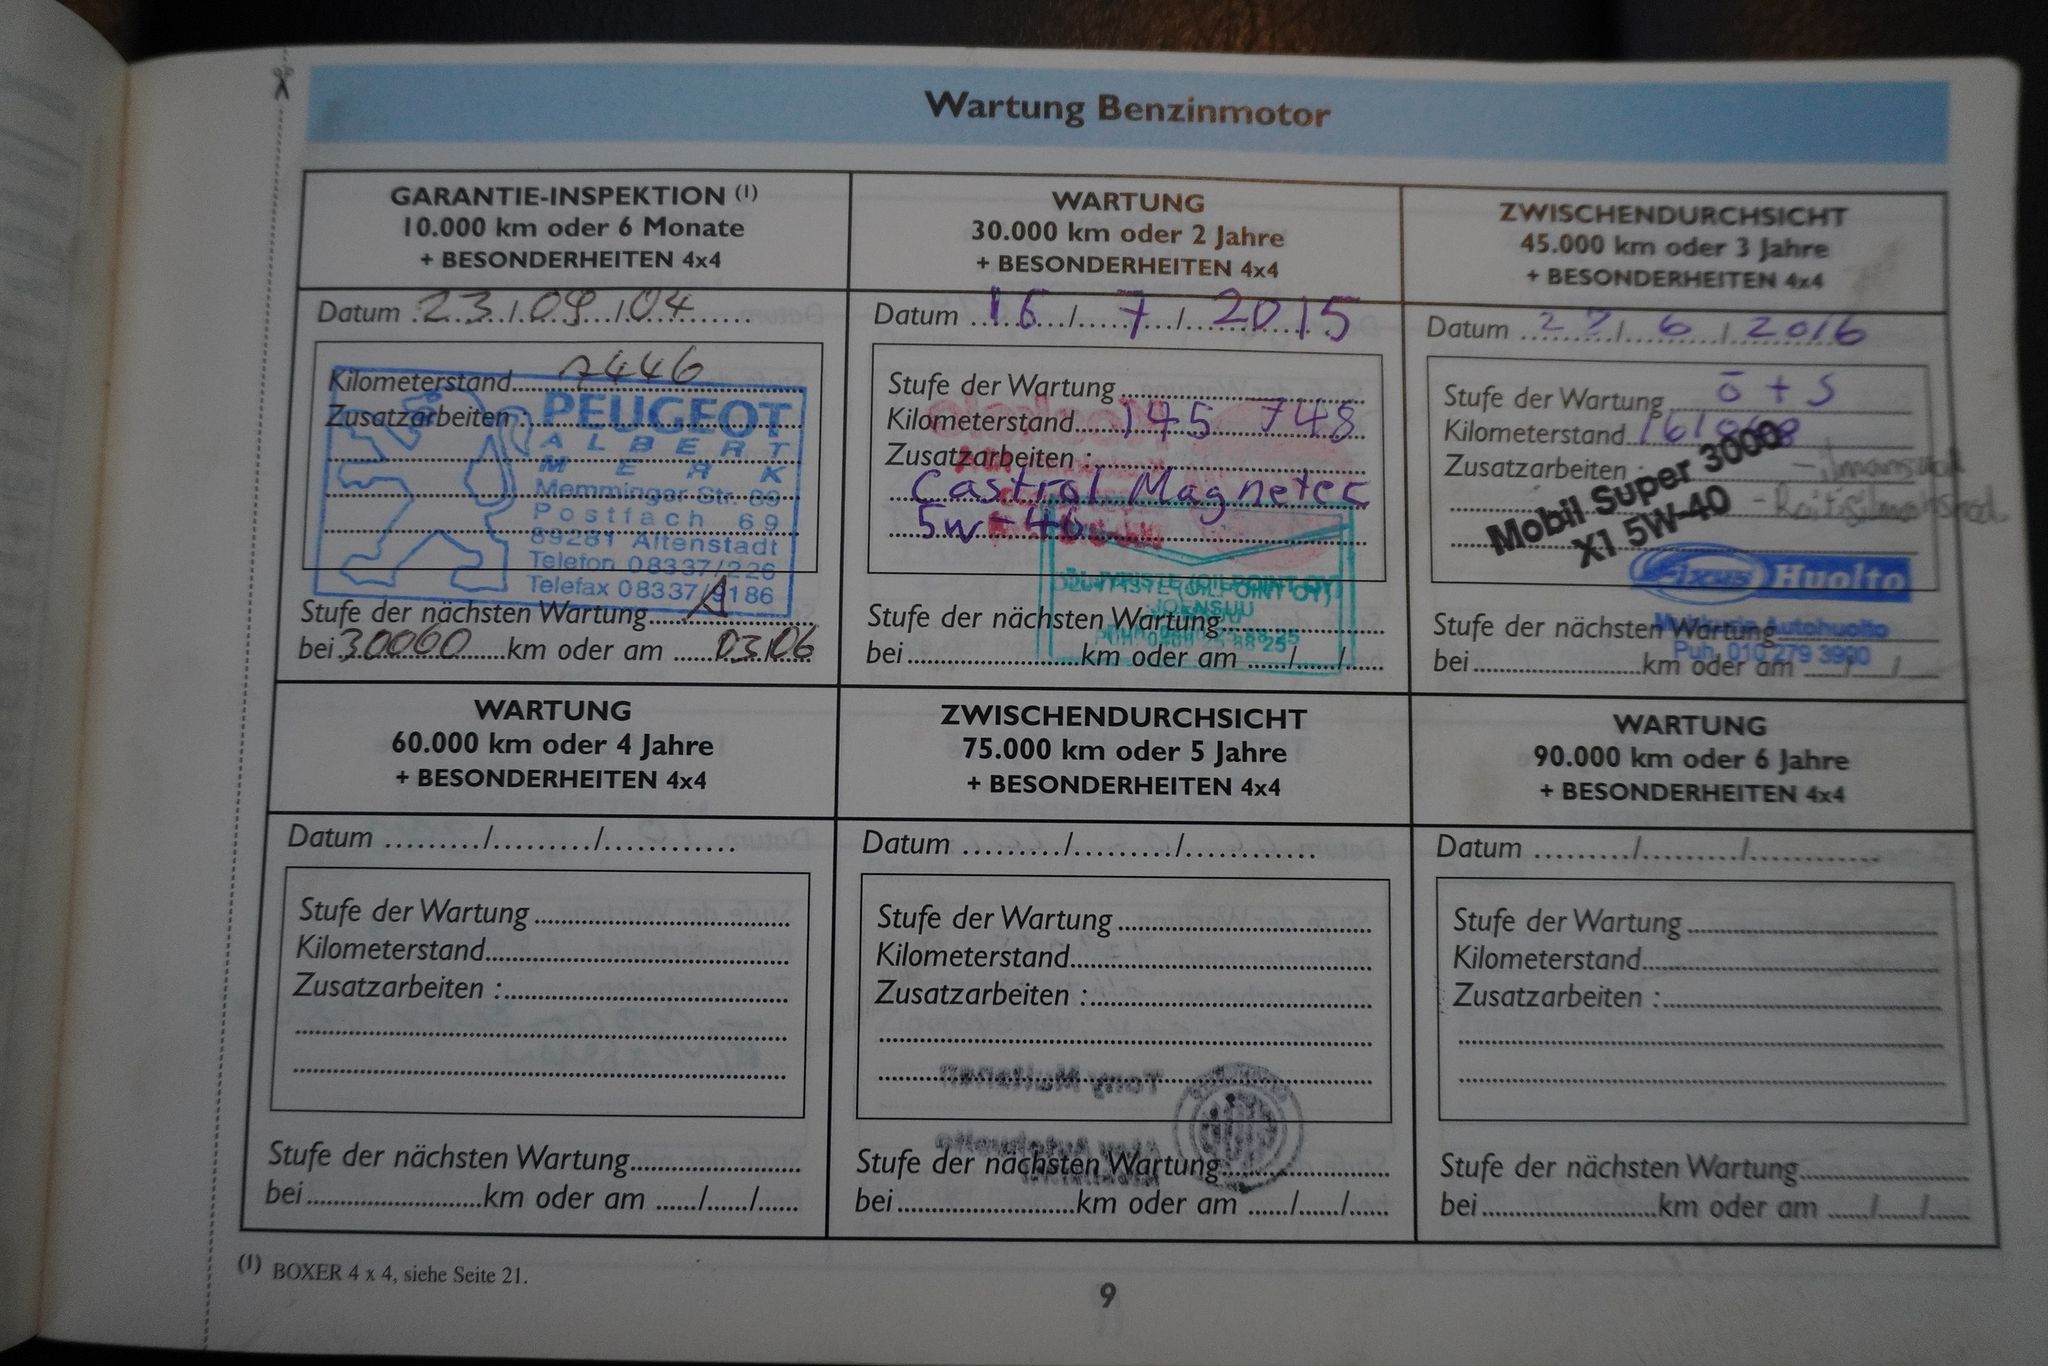 Wartung Benzinmotor
GARANTIE-INSPEKTION (1)
10.000 km oder 6 Monate
+ BESONDERHEITEN 4x4
Datum 23/09/04
Kilometerstand 7446
Zusatzarbeiten :
PEUGEOT
ALBERT
MERK
Memminger Str. 69
Postfach 69
89281 Altenstadt
Telefon 08337/226
Telefax 08337/9186
Stufe der nächsten Wartung A
bei 30000 km oder am 03.06
WARTUNG
30.000 km oder 2 Jahre
+ BESONDERHEITEN 4x4
Datum 16/7/2015
Stufe der Wartung
Kilometerstand 145 748
Zusatzarbeiten :
Castrol Magnetec
5w-40
JOENSUU
Stufe der nächsten Wartung
bei km oder am / /
ZWISCHENDURCHSICHT
45.000 km oder 3 Jahre
+ BESONDERHEITEN 4x4
Datum 27/6/2016
Stufe der Wartung ö + s
Kilometerstand
Zusatzarbeiten :
Mobil Super 3000
X1 5W-40
Fixus Huolto
Autohuolto
Puh. 010 279 3900
Stufe der nächsten Wartung
bei km oder am / /
WARTUNG
60.000 km oder 4 Jahre
+ BESONDERHEITEN 4x4
Datum / /
Stufe der Wartung
Kilometerstand
Zusatzarbeiten :
Stufe der nächsten Wartung
bei km oder am / /
ZWISCHENDURCHSICHT
75.000 km oder 5 Jahre
+ BESONDERHEITEN 4x4
Datum / /
Stufe der Wartung
Kilometerstand
Zusatzarbeiten :
Tony Multanen
Stufe der nächsten Wartung
bei km oder am / /
WARTUNG
90.000 km oder 6 Jahre
+ BESONDERHEITEN 4x4
Datum / /
Stufe der Wartung
Kilometerstand
Zusatzarbeiten :
Stufe der nächsten Wartung
bei km oder am / /
(1) BOXER 4 x 4, siehe Seite 21.
9